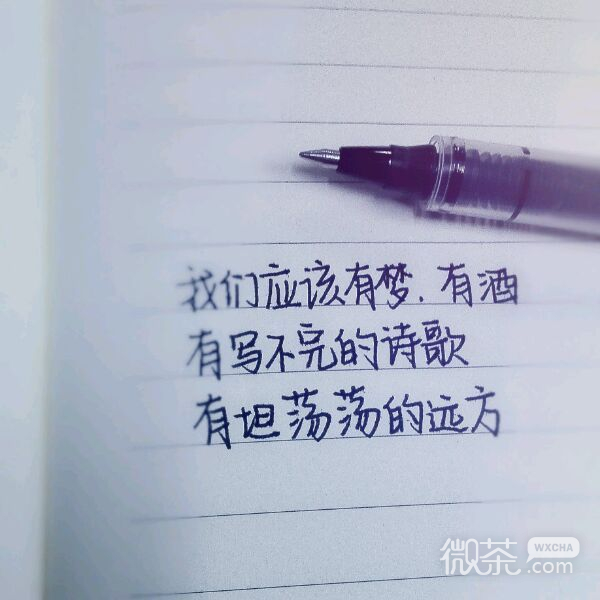 我们应该有梦.有酒
有写不完的诗歌
有坦荡荡的远方
微茶 WXCHA
.com